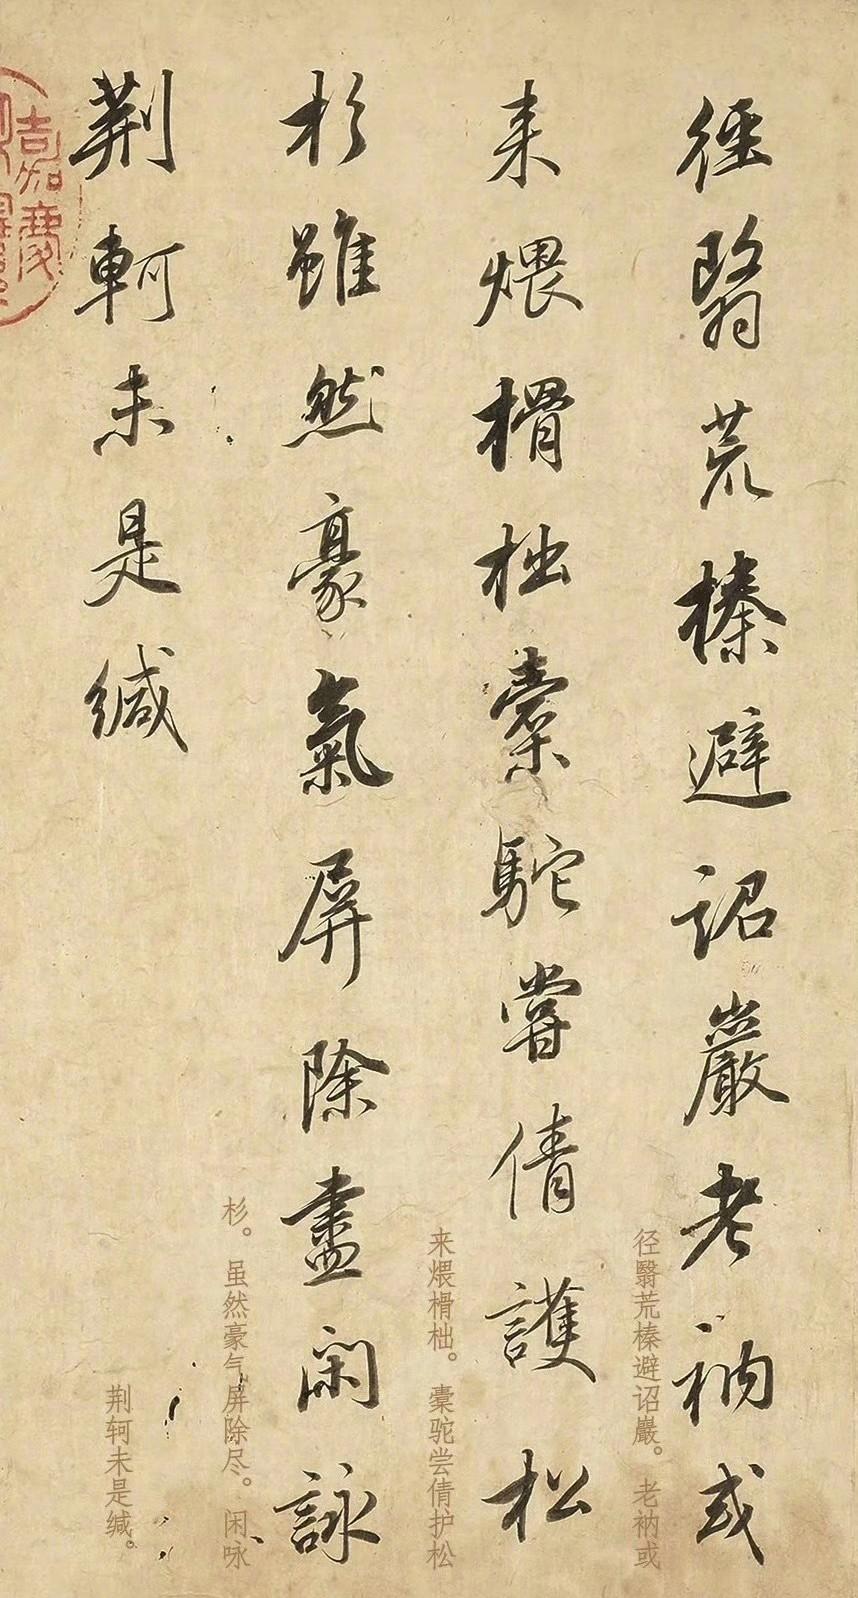 徑翳荒榛避詔巖老衲或
来煨榾柮橐駝嘗倩護松
杉雖然豪氣屏除盡閑詠
荆軻未是緘
径翳荒榛避诏巖。老衲或
来煨榾柮。橐驼尝倩护松
杉。虽然豪气屏除尽。闲咏
荆轲未是缄。
嘉慶